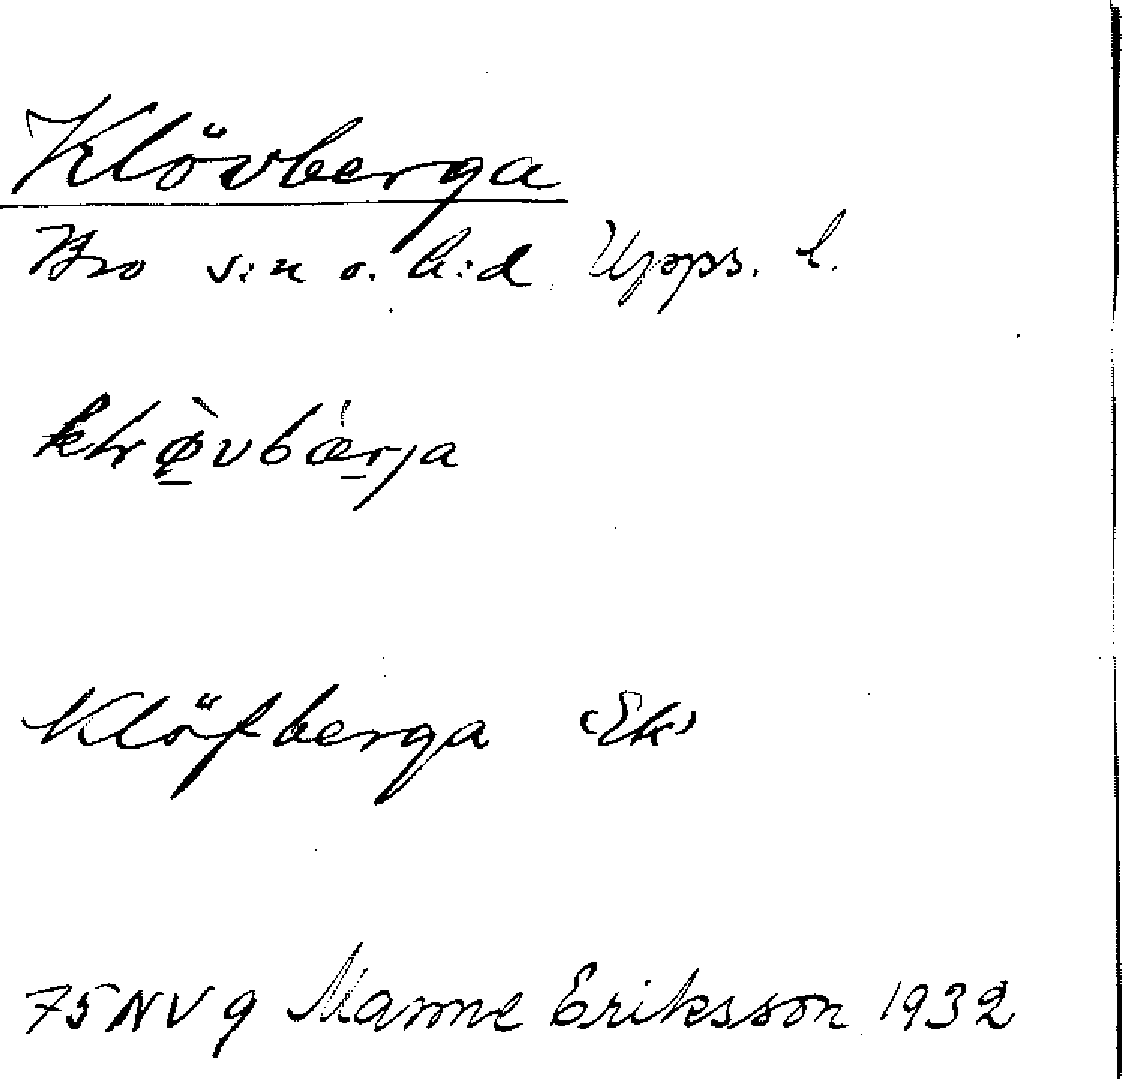 Klövberga
Bro s:n o. h:d Upps. l.
klø̀vbǽrja
Klöfberga (Ek)
75 NV g Manne Eriksson 1932